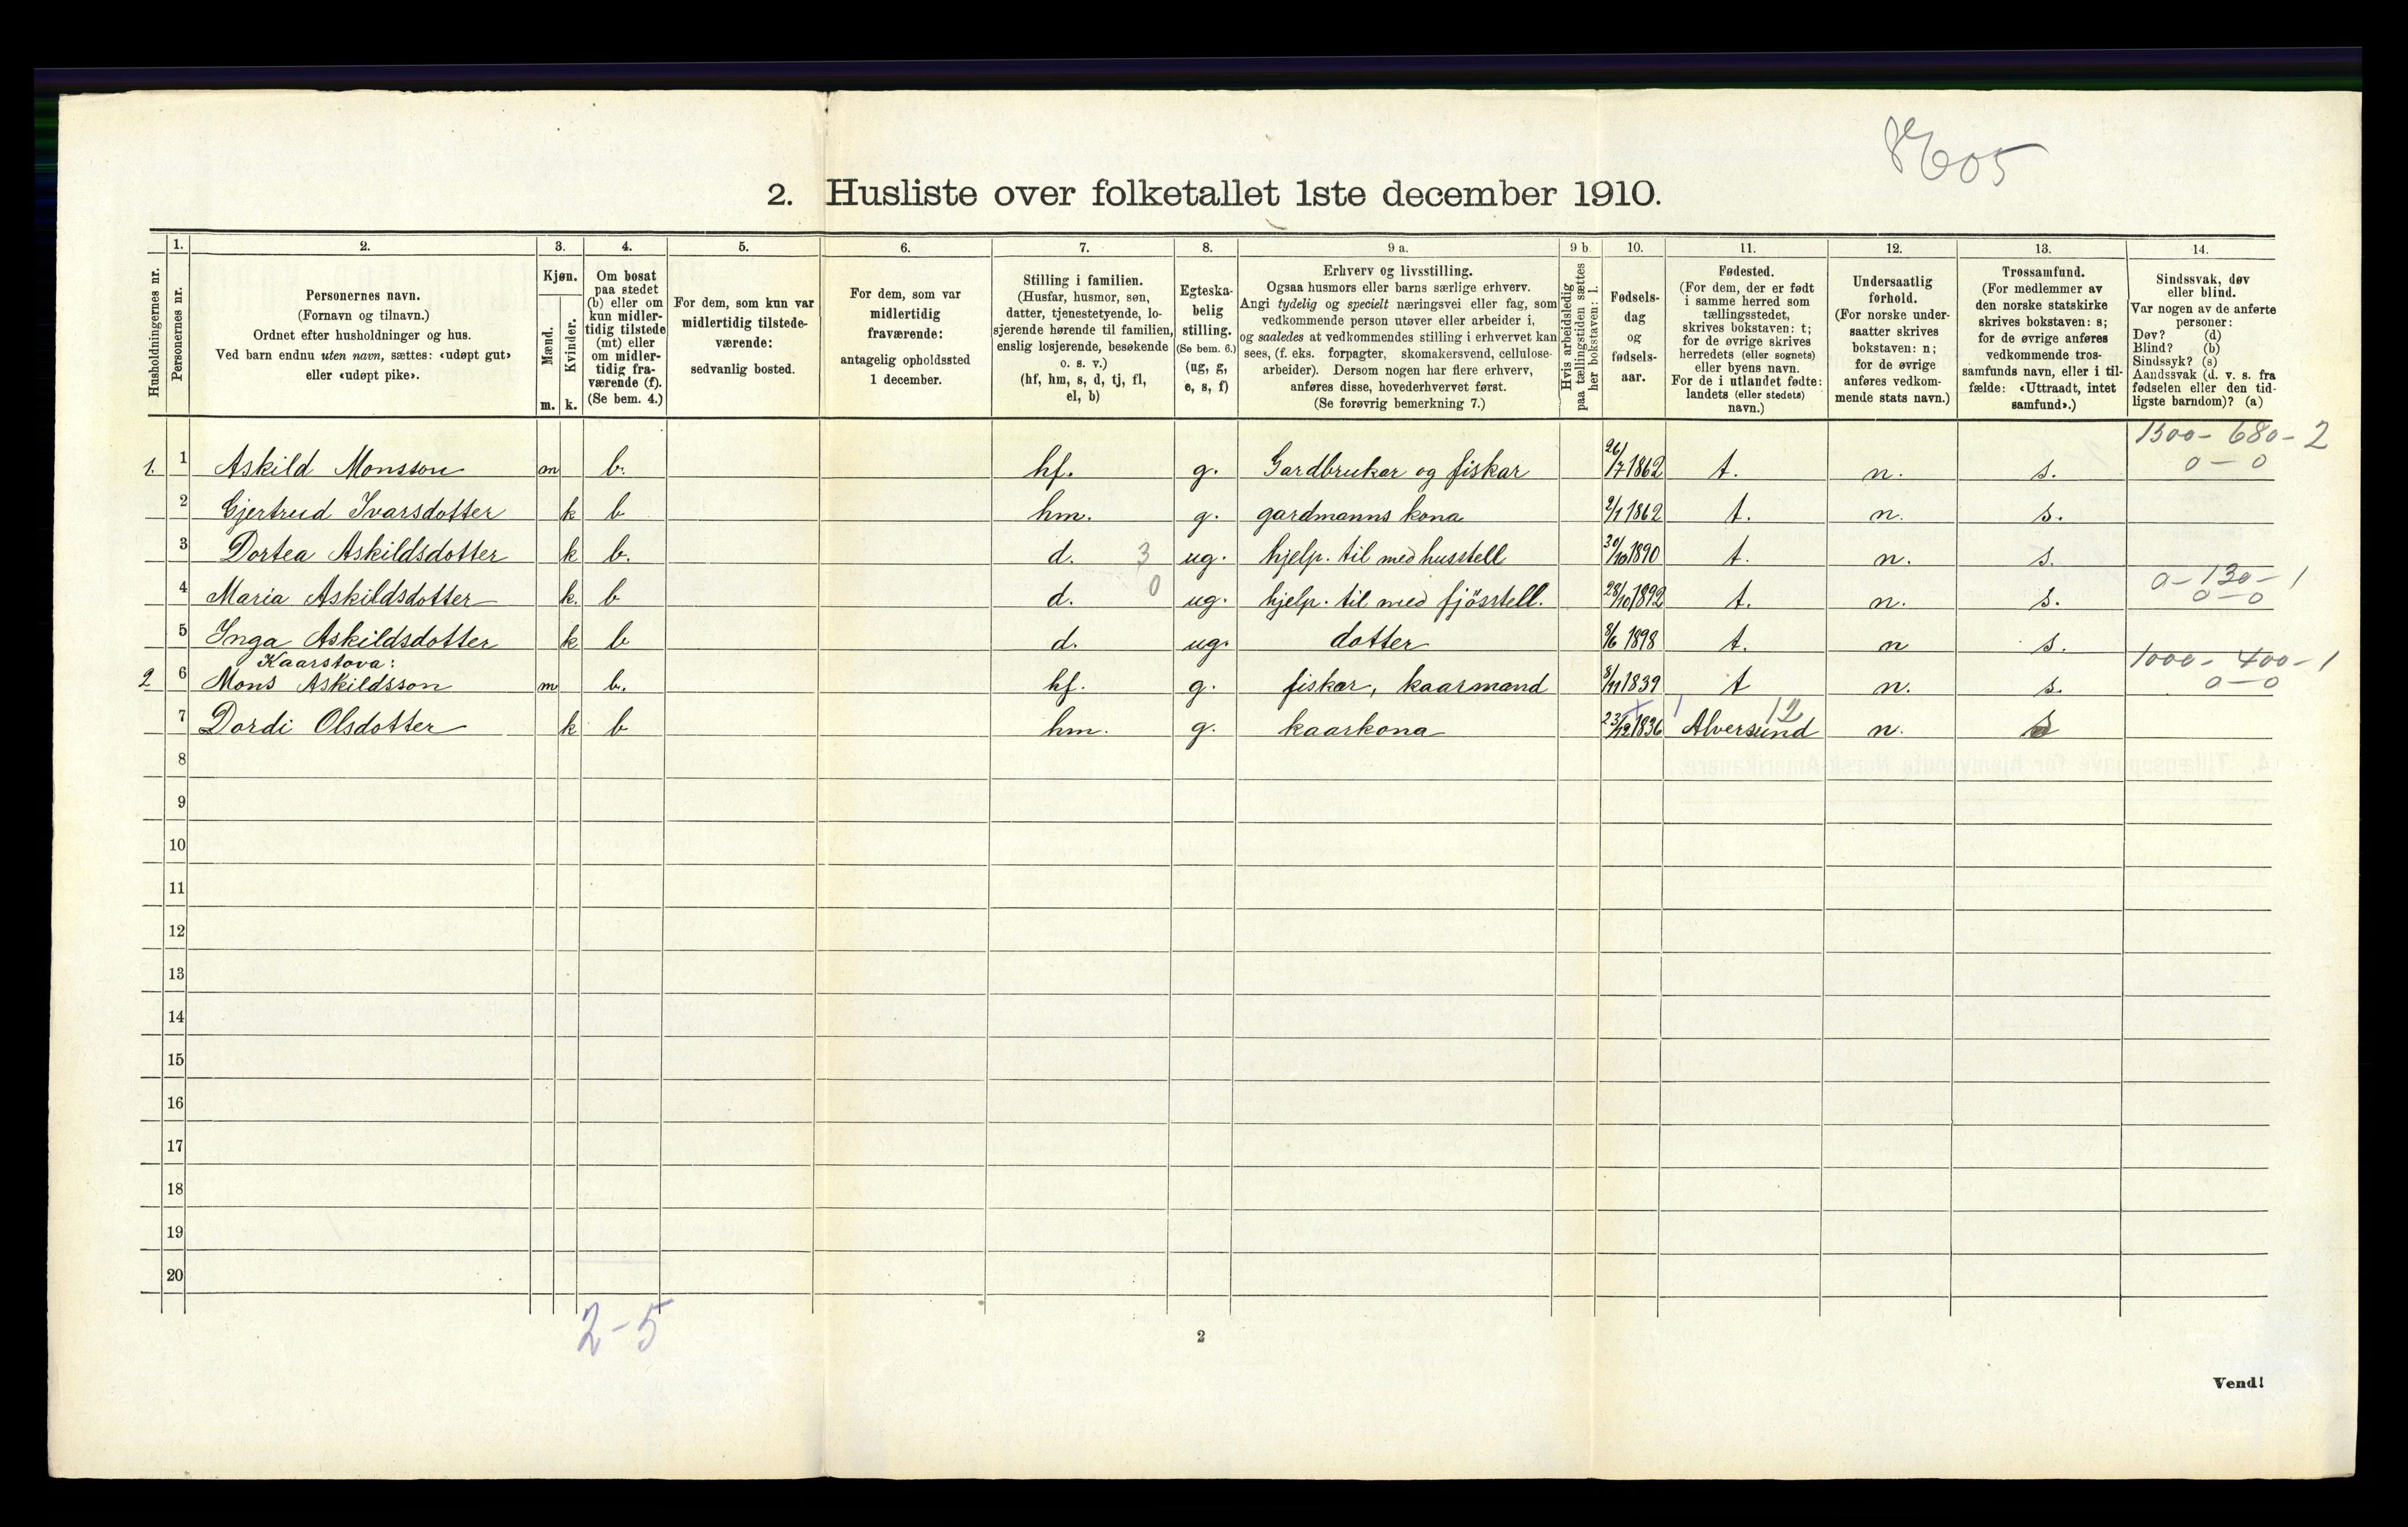 8605
2. Husliste over folketallet 1ste december 1910.
Husholdningernes nr.
1.
Personernes nr.
2.
Personernes navn.
(Fornavn og tilnavn.)
Ordnet efter husholdninger og hus.
Ved barn endnu uten navn, sættes: «udøpt gut»
eller «udøpt pike».
3.
Kjøn.
Mænd.
m.
Kvinder.
k.
4.
Om bosat
paa stedet
(b) eller om
kun midler-
tidig tilstede
(mt) eller
om midler-
tidig fra-
værende (f).
(Se bem. 4.)
5.
For dem, som kun var
midlertidig tilstede-
værende:
sedvanlig bosted.
6.
For dem, som var
midlertidig
fraværende:
antagelig opholdssted
1 december.
7.
Stilling i familien.
(Husfar, husmor, søn,
datter, tjenestetyende, lo-
sjerende hørende til familien,
enslig losjerende, besøkende
o. s. v.)
(hf, hm, s, d, tj, fl,
el, b)
8.
Egteska-
belig
stilling.
(Se bem. 6.)
(ug, g,
e, s, f)
9 a.
Erhverv og livsstilling.
Ogsaa husmors eller barns særlige erhverv.
Angi tydelig og specielt næringsvei eller fag, som
vedkommende person utøver eller arbeider i,
og saaledes at vedkommendes stilling i erhvervet kan
sees, (f. eks. forpagter, skomakersvend, cellulose-
arbeider). Dersom nogen har flere erhverv,
anføres disse, hovederhvervet først.
(Se forøvrig bemerkning 7.)
9 b
Hvis arbeidsledig
paa tællingstiden sættes
her bokstaven: l.
10.
Fødsels-
dag
og
fødsels-
aar.
11.
Fødested.
(For dem, der er født
i samme herred som
tællingsstedet,
skrives bokstaven: t;
for de øvrige skrives
herredets (eller sognets)
eller byens navn.
For de i utlandet fødte:
landets (eller stedets)
navn.)
12.
Undersaatlig
forhold.
(For norske under-
saatter skrives
bokstaven: n;
for de øvrige
anføres vedkom-
mende stats navn.)
13.
Trossamfund.
(For medlemmer av
den norske statskirke
skrives bokstaven: s;
for de øvrige anføres
vedkommende tros-
samfunds navn, eller i til-
fælde: «Uttraadt, intet
samfund».)
14.
Sindssvak, døv
eller blind.
Var nogen av de anførte
personer:
Døv? (d)
Blind? (b)
Sindssyk? (s)
Aandssvak (d. v. s. fra
fødselen eller den tid-
ligste barndom)? (a)
1300 - 680 - 2
1. 1 Askild Monsson m b. hf. g. Gardbrukar og fiskar 26/7 1862 t. n. s. 0 - 0
2 Gjertrud Ivarsdotter k b hm. g. gardmanns kona 2/1 1862 t. n. s.
3 Dortea Askildsdotter k b. d. 3 ug. hjelp. til med husstell 30/10 1890 t. n. s.
0 - 130 - 1
4 Maria Askildsdotter k. b d. 0 ug. hjelp. til med fjösstell. 28/10 1892 t. n. s. 0 - 0
5 Inga Askildsdotter k b d. ug. dotter 8/6 1898 t. n s.
Kaarstova: 1000 - 400 - 1
2 6 Mons Askildsson m b. hf. g. fiskar, kaarmand 8/11 1839 t n. s. 0 - 0
12
7 Dordi Olsdotter k b hm. g. kaarkona 23/12 1836 Alversund n. s
8
9
10
11
12
13
14
15
16
17
18
19
20
2 - 5
2
Vend!